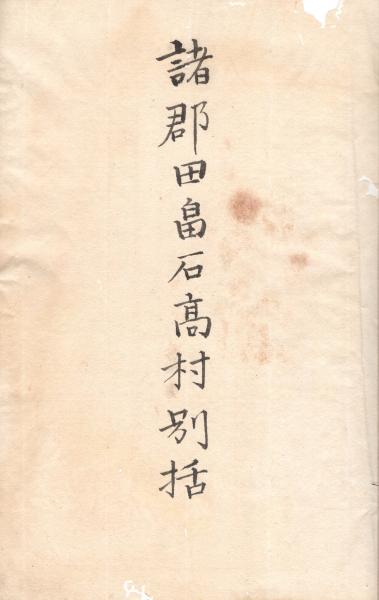 諸郡田畠石髙村別括